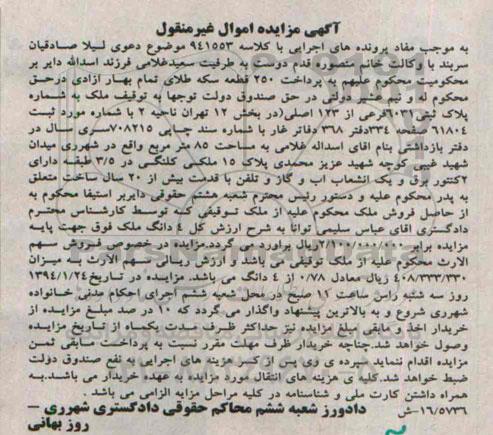 آگهی مزایده اموال غیرمنقول
به موجب مفاد پرونده های اجرایی با کلاسه ۹۴۱۵۵۳ موضوع دعوی لیلا صادقیان
سربند با وکالت خانم منصوره قدم دوست به طرفیت سعیدغلامی فرزند اسداله دایر بر
محکومیت محکوم علیهم به پرداخت ۲۵۰ قطعه سکه طلای تمام بهار آزادی درحق
محکوم له و نیم عشر دولتی در حق صندوق دولت توجها به توقیف ملک به شماره
پلاک ثبتی۶۰۳۱فرعی از ۱۲۳ اصلی(در بخش ۱۲ تهران ناحیه ۲ با شماره مورد ثبت
۶۱۸۰۴ صفحه ۳۳۴دفتر ۳۶۸ دفاتر غار با شماره سند چاپی ۷۰۸۲۱۵سری سال در
دفتر بازداشتی بنام اقای اسداله غلامی به مساحت ۸۵ متر مربع واقع در شهرری میدان
شهید غیبی کوچه شهید عزیز محمدی پلاک ۱۵ ملکسی کلنگی در ۳/۵ طبقه دارای
۲کنتور برق و یک انشعاب اب و گاز و تلفن با قدمت بیش از ۲۰ سال ساخت متعلق
به پدر محکوم علیه و دستور رئیس محترم شعبه هشتم حقوقی دایربر استیفا محکوم به
از حاصل فروش ملک محکوم علیه از ملک توقیفی که توسط کارشناس محترم
دادگستری اقای عباس سلیمی توانا به شرح ارزش کل ۴ دانگ ملک فوق جهت پایه
مزایده برابر ۲/۱۰۰/۰۰۰/۰۰۰ریال براورد می گردد.مزایده در خصوص فروش سهم
الارث محکوم علیه از ملک توقیفی می باشد و ارزش ریالی سهم الارث به میزان
۴۰۸/۳۳۳/۳۳۰ ریال معادل ۰/۷۸ از ۴ دانگ می باشد. مزایده در تاریخ۱۳۹۴/۱/۲۴
روز سه شنبه راس ساعت ۱۱ صبح در محل شعبه ششم اجرای احکام مدنی خانواده
شهرری شروع و به بالاترین پیشنهاد واگذار می گردد که ۱۰ در صد مبلغ مزایده از
خریدار اخذ و مابقی مبلغ مزایده نیز حداکثر ظرف مدت یکماه از تاریخ مزایده
وصول خواهد شد.چناچه خریدار ظرف مهلت مقرر نسبت به پرداخت مابقی ثمن
مزایده اقدام ننماید سپرده ی وی پس از کسر هزینه های اجرایی به نفع صندوق دولت
ضبط خواهد شد.کلیه ی هزینه های انتقال مورد مزایده به عهده خریدار می باشد.به
همراه داشتن کارت ملی و شناسنامه در کلیه مراحل مزایه الزامی می باشد .
۱۶/۵۷۳۶-ش دادورز شعبه ششم محاکم حقوقی دادگستری شهرری –
روز بهانی